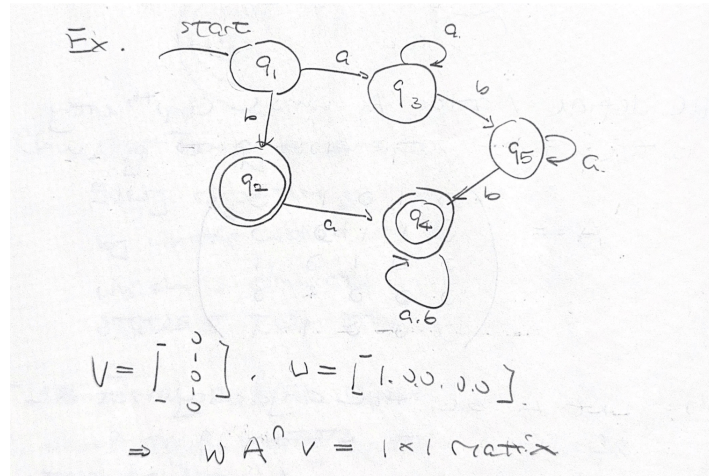 Ex.
start
q1
a
a.
q3
b
b
q5
a.
q2
b
a
q4
a.b
V = [0 1 0 1 0] . w = [1. 0.0. 0.0]
⇒ w A^n v = 1×1 matrix